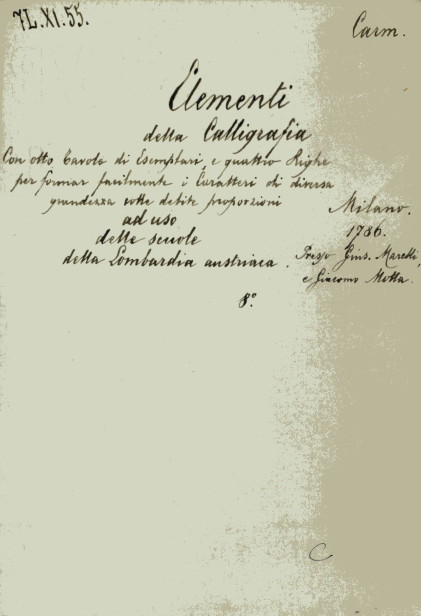 7L.XI.55.
Carm.
Elementi
della Calligrafia
Con otto Tavole di Esemplari, e quattro Righe
per formar facilmente i Caratteri di diversa
grandezza colle debite proporzioni
ad uso
delle scuole
della Lombardia austriaca.
Milano.
1786.
Presso Gius. Marelli,
e Giacomo Motta.
8°
C